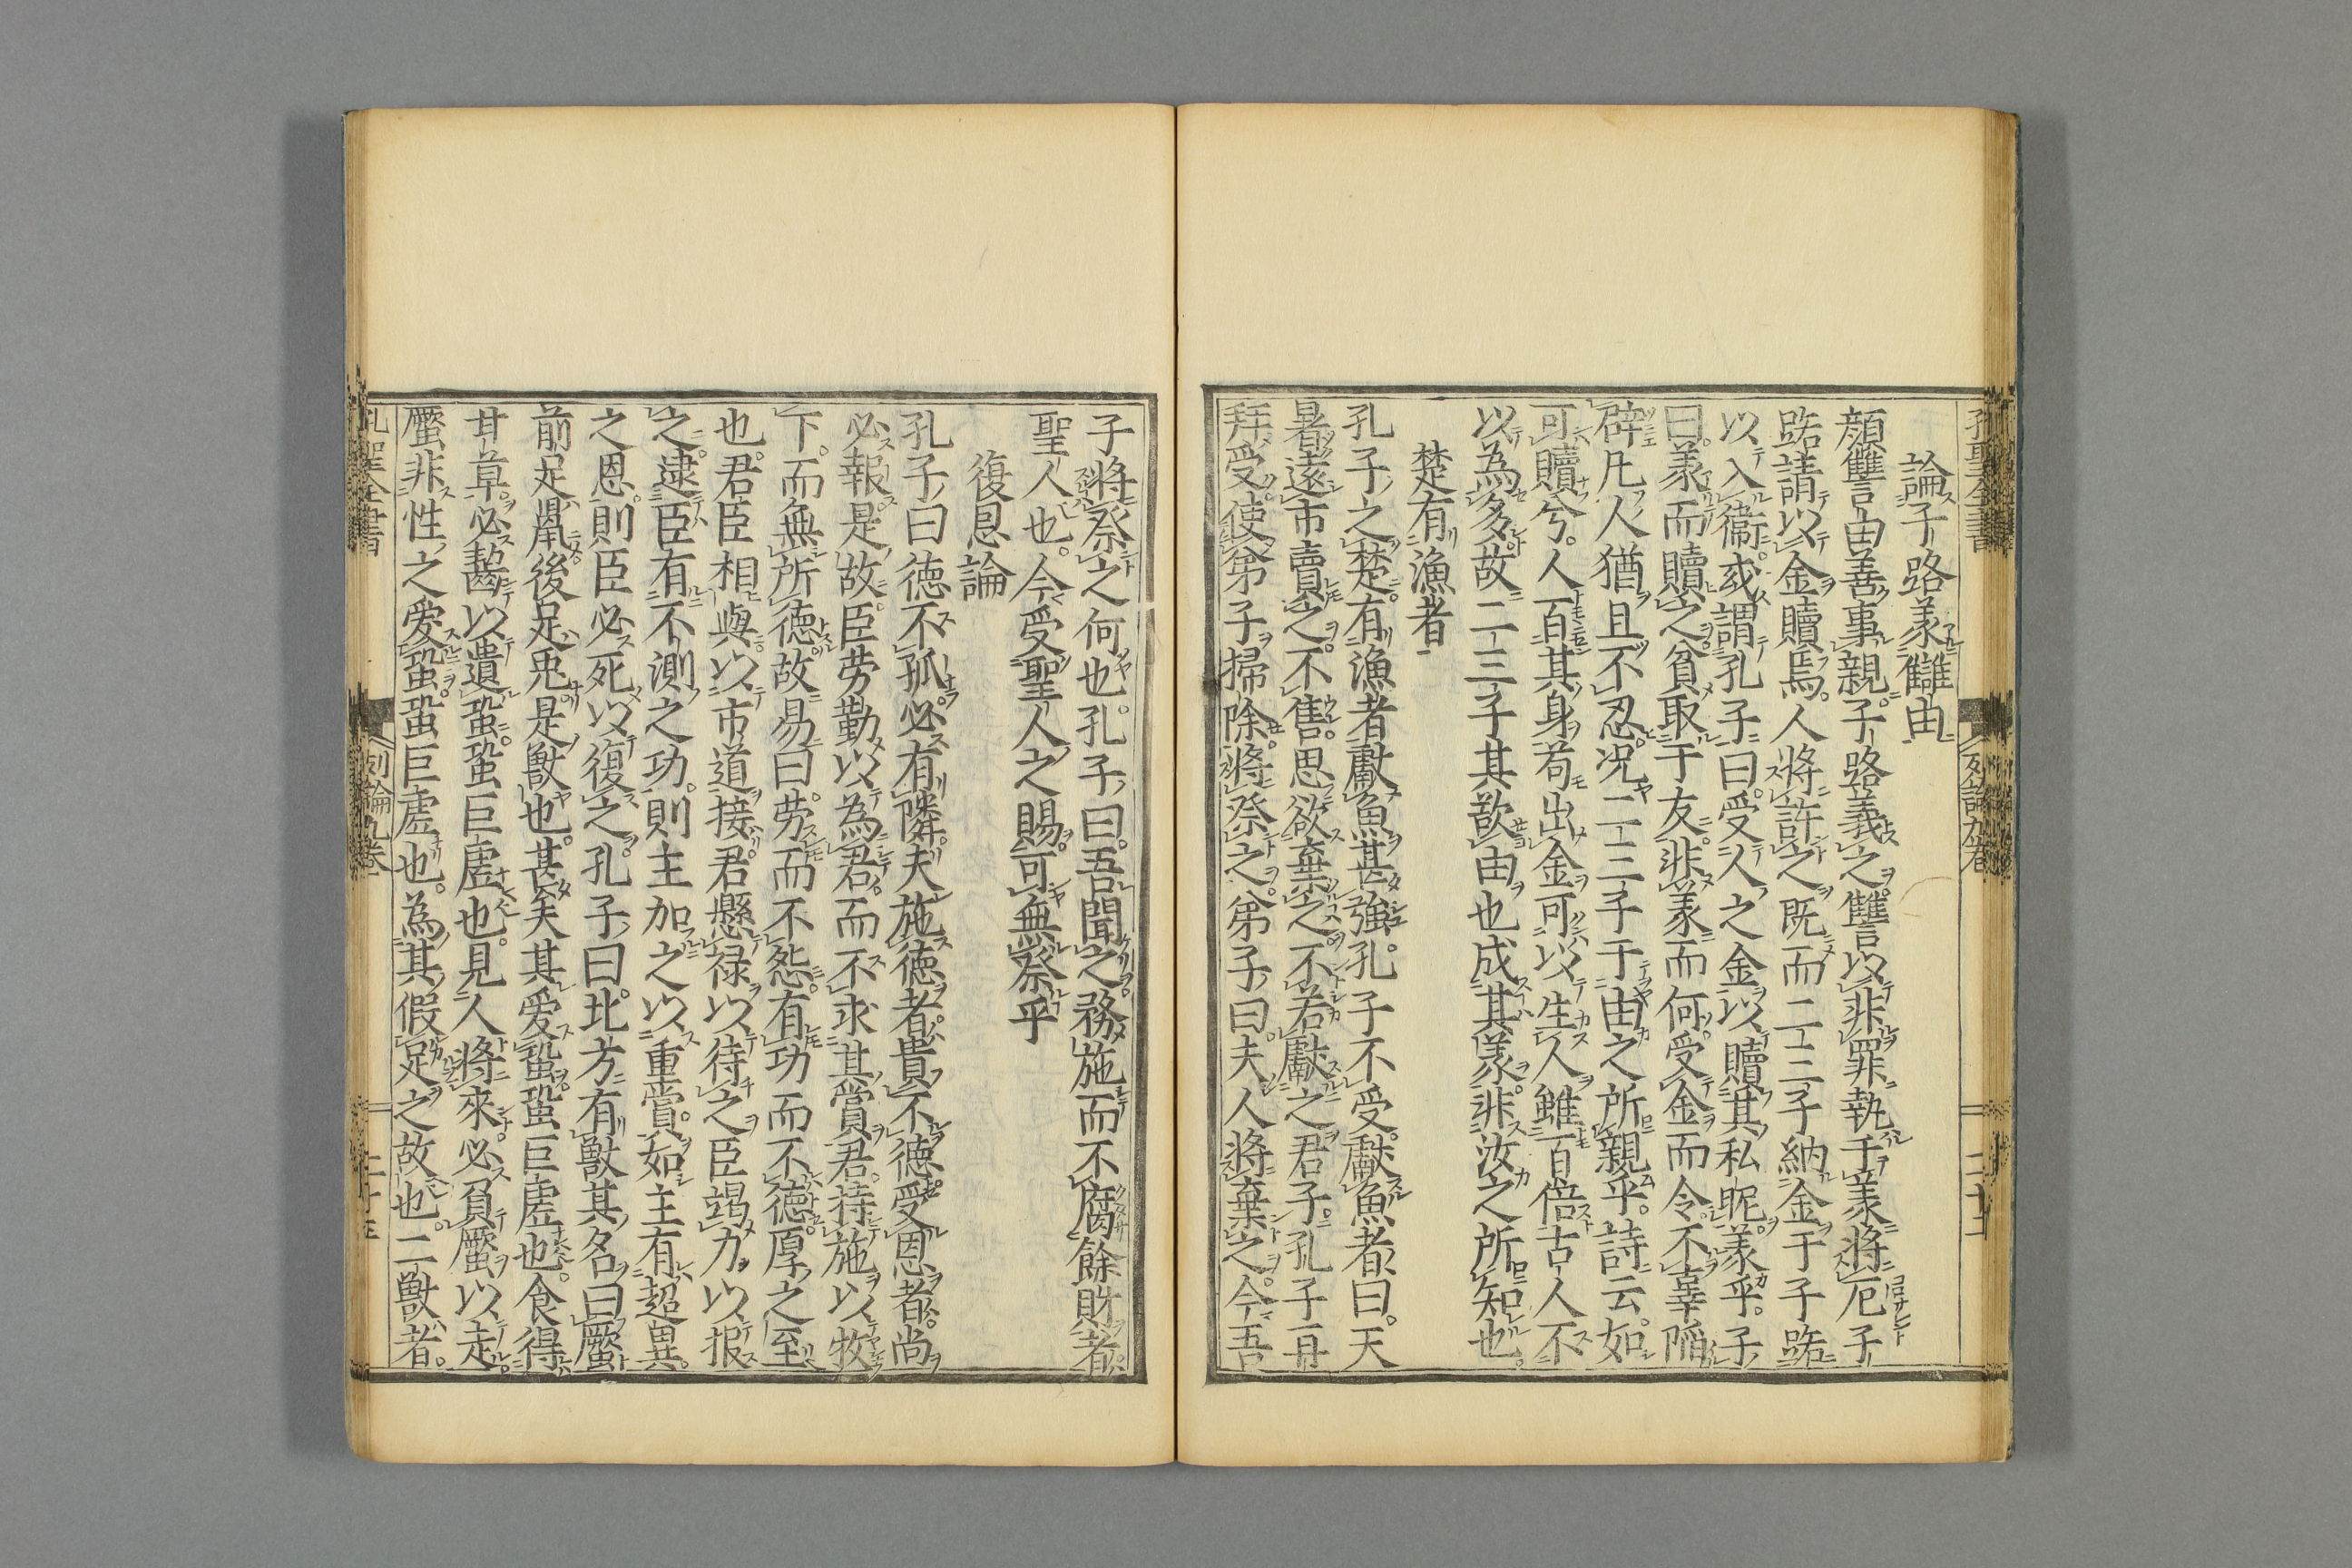 孔聖全書
列論九卷
二十二
論子路義讎由
顏讐由善事親子路義之讐以非罪執于衛將厄子
路請以金贖焉人將許之既而二三子納金于子路
以入衛或謂孔子曰受人之金以贖其私昵義乎子
曰義而贖之貧取于友非義而何受金而令不辜陷
辟凡人猶且不忍况二三子于由之所親乎詩云如
可贖兮人百其身苟出金可以生人雖百倍古人不
以為多故二三子其歆由也成其義非汝之所知也
楚有漁者
孔子之楚有漁者獻魚甚強孔子不受獻魚者曰天
暑遠市賣之不售思欲棄之不若獻之君子孔子再
拜受使弟子掃除將祭之弟子曰夫人將棄之今吾
子將祭之何也孔子曰吾聞之務施而不腐餘財者
聖人也今受聖人之賜可無祭乎
復恩論
孔子曰徳不孤必有隣夫施徳者貴不徳受恩者尚
必報是故臣劳勤以為君而不求其賞君持施以牧
下而無所徳故易曰劳而不怨有功而不徳厚之至
也君臣相與以市道接君懸禄以待之臣竭力以报
之逮臣有不測之功則主加之以重賞如主有超異
之恩則臣必死以復之孔子曰北方有獸其名曰蟨
前足鼠後足兎是獸也甚矣其爱蛩蛩巨虚也食得
甘草必齧以遺蛩蛩巨虚也見人將來必負蟨以走
蟨非性之爱蛩蛩巨虚也為其假足之故也二獸者
孔聖全書
列論九卷